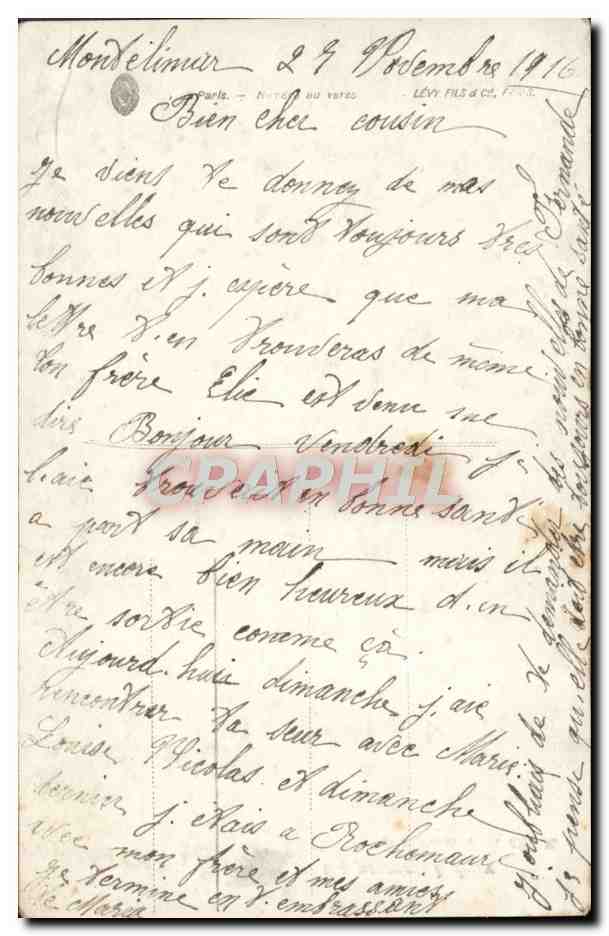 Montélimar 27 Novembre 1916
Paris. — au verso LÉVY FILS & Cie,
Bien cher cousin
Je viens te donney de mes
nouvelles qui sont toujours très
bonnes et j. espère que ma
lettre t.en trouveras de même
ton frère Elie est venu me
dire Bonjour vendredi j
l.aie trouvait en bonne santé
a part sa main mais il
est encore bien heureux d.en
être sortie comme ça.
Aujourd.huie dimanche j.aie
rencontrer ta seur avec Marie
Louise Nicolas. et dimanche
dernier j. etais a Rochemaure
avec mon frère et mes amies
je termine en t.embrassant
Marie
J.oubliais de te demander des nouvelles de Fernande
Je pense qu.elle doit etre toujours en bonne santé
CPAPHIL